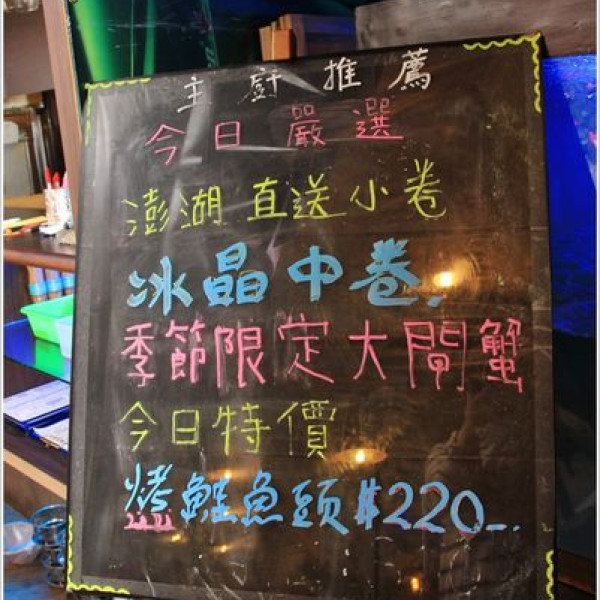 主廚推薦
今日嚴選
澎湖直送小卷
冰晶中卷.
季節限定大閘蟹
今日特價
烤鮭魚頭$220-.